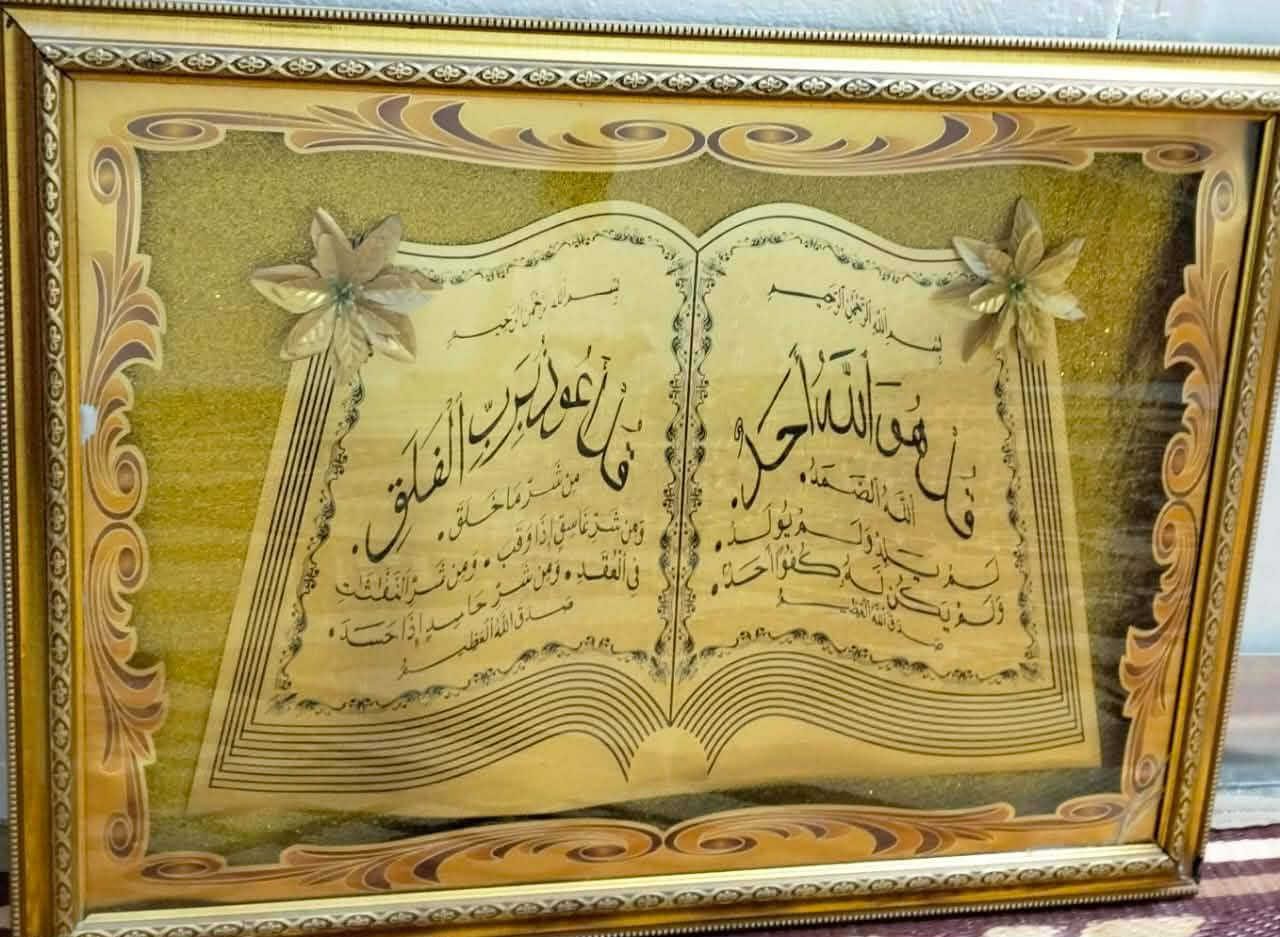 بسم الله الرحمن الرحيم
قُلْ هُوَ اللَّهُ أَحَدٌ
اللَّهُ الصَّمَدُ
لَمْ يَلِدْ وَلَمْ يُولَدْ
وَلَمْ يَكُنْ لَهُ كُفُوًا أَحَدٌ
صدق الله العظيم
بسم الله الرحمن الرحيم
قُلْ أَعُوذُ بِرَبِّ الْفَلَقِ
مِن شَرِّ مَا خَلَقَ
وَمِن شَرِّ غَاسِقٍ إِذَا وَقَبَ • وَمِن شَرِّ النَّفَّٰثَٰتِ
فِي الْعُقَدِ • وَمِن شَرِّ حَاسِدٍ إِذَا حَسَدَ •
صدق الله العظيم